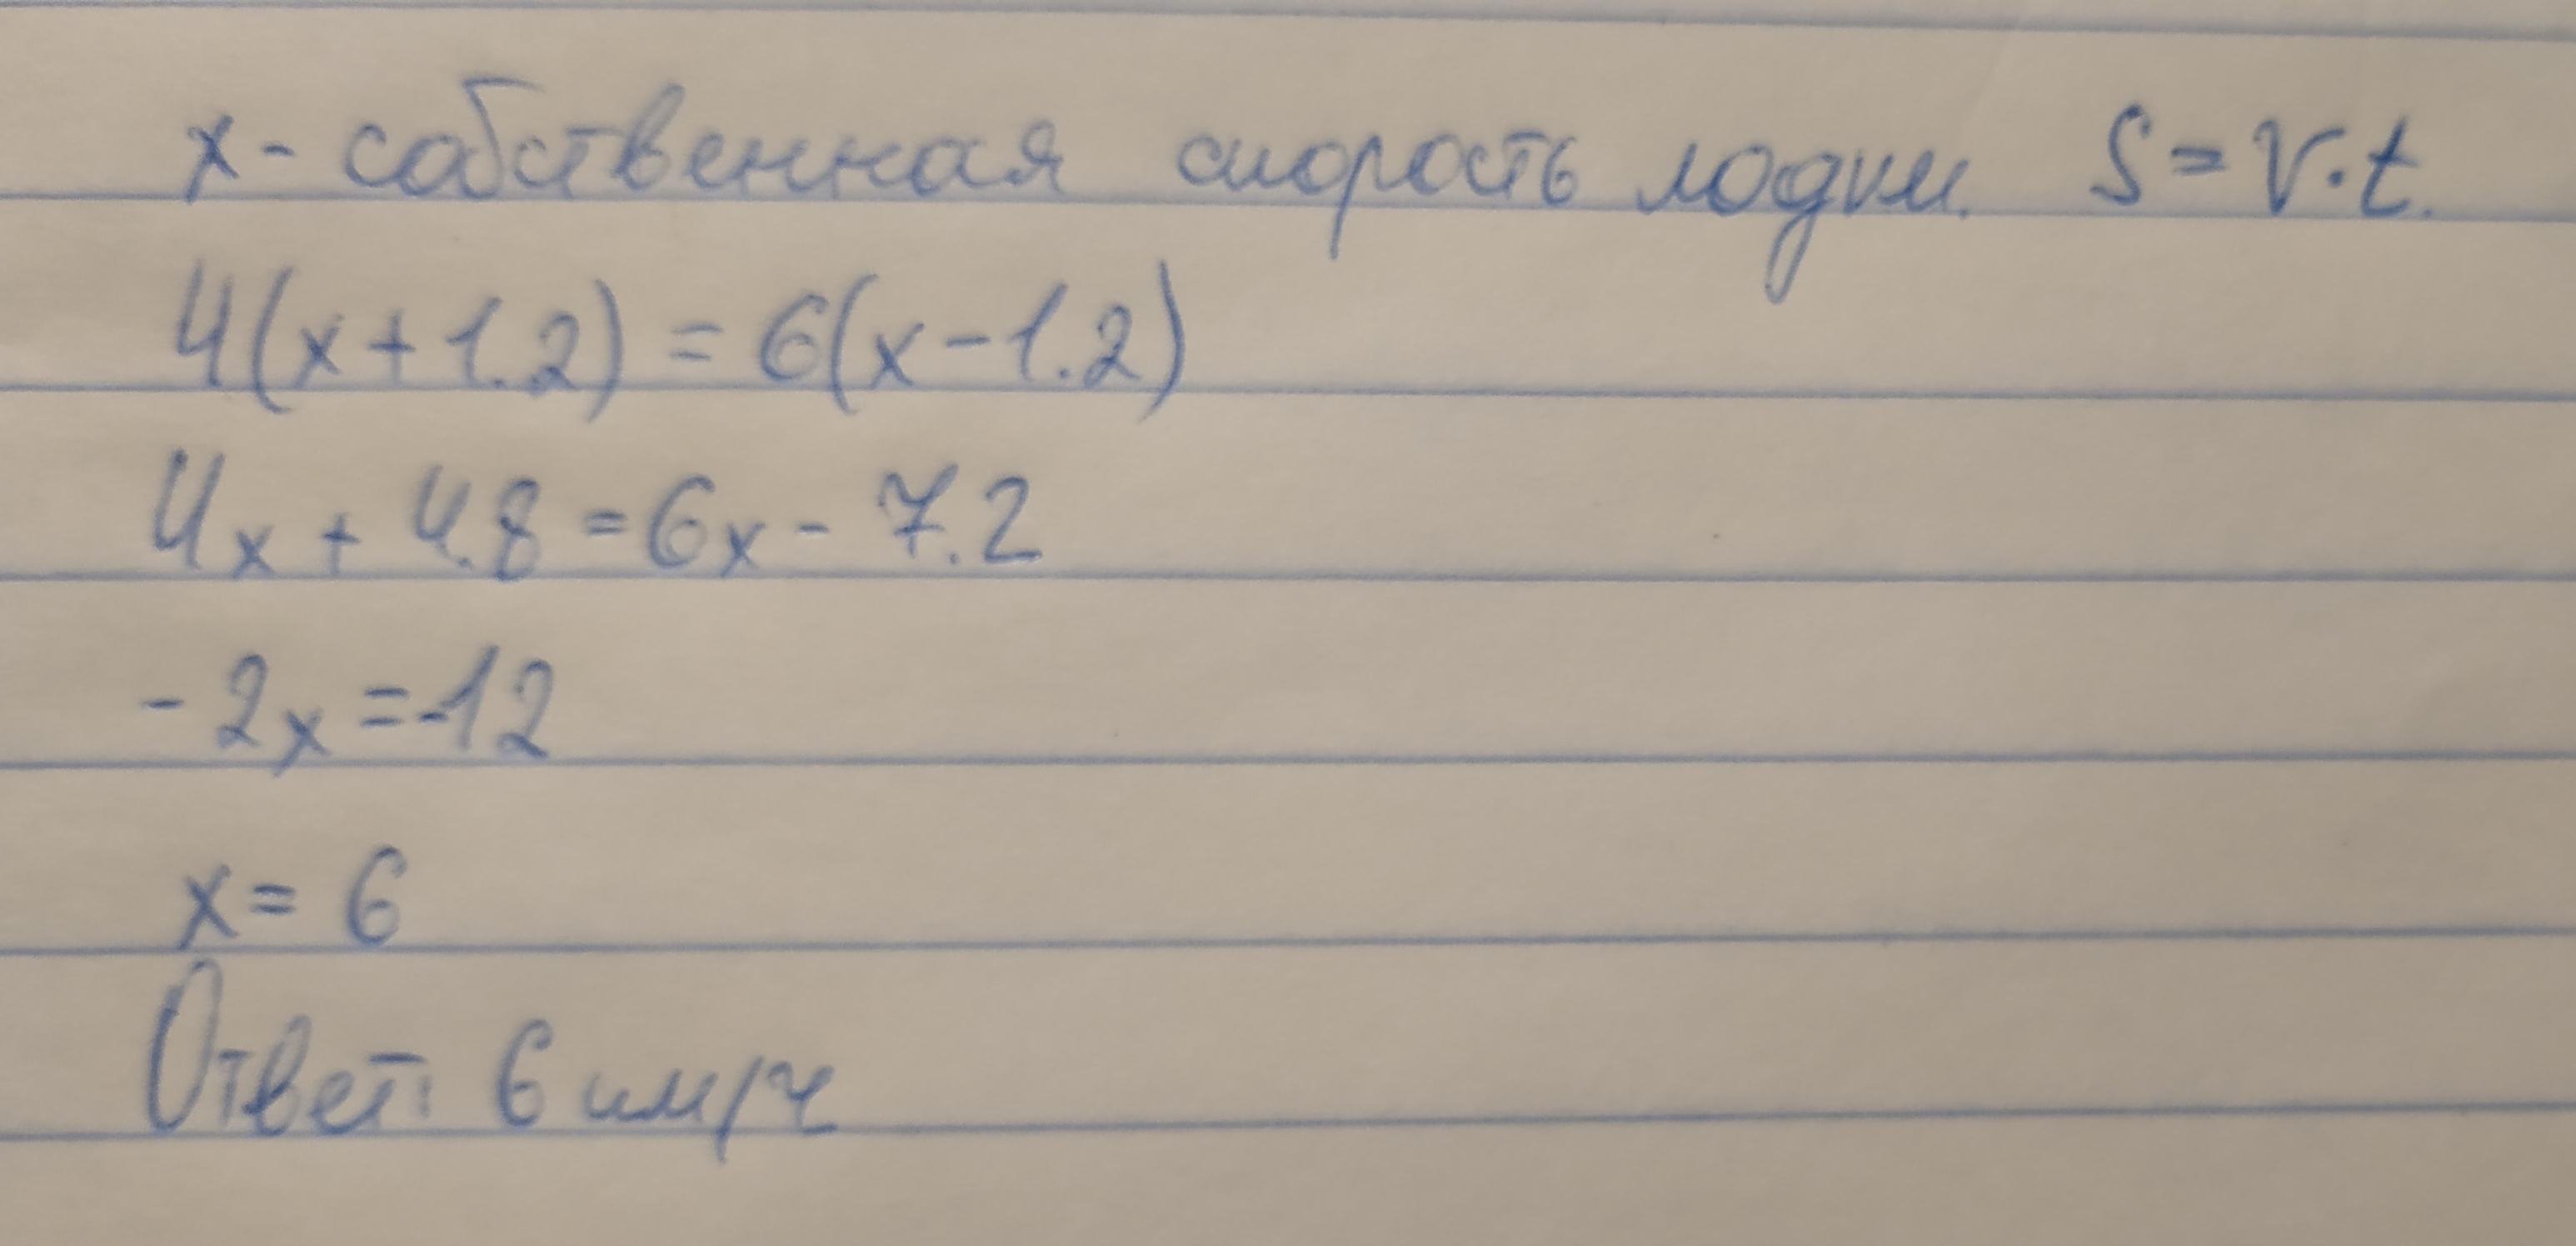 x - собственная скорость лодки. S = V · t.
4(x + 1.2) = 6(x - 1.2)
4x + 4.8 = 6x - 7.2
- 2x = -12
x = 6
Ответ: 6 км/ч